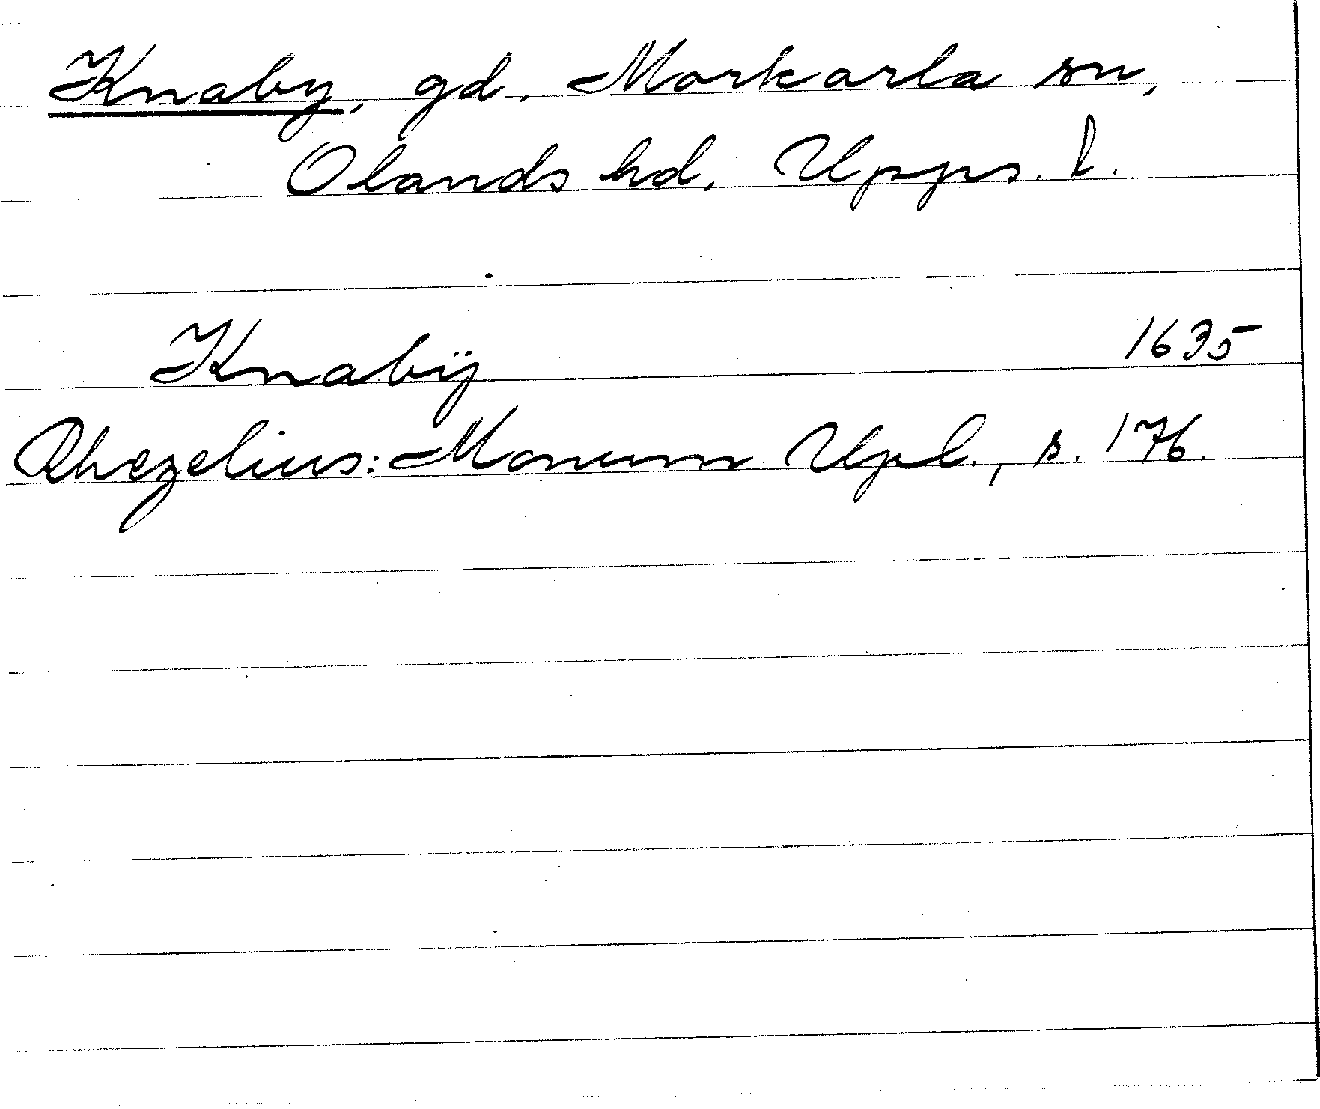 Knaby, gd, Morkarla sn,
Olands hd, Upps. l.
Knabÿ 1635
Rhezelius: Monum Upl., s. 176.